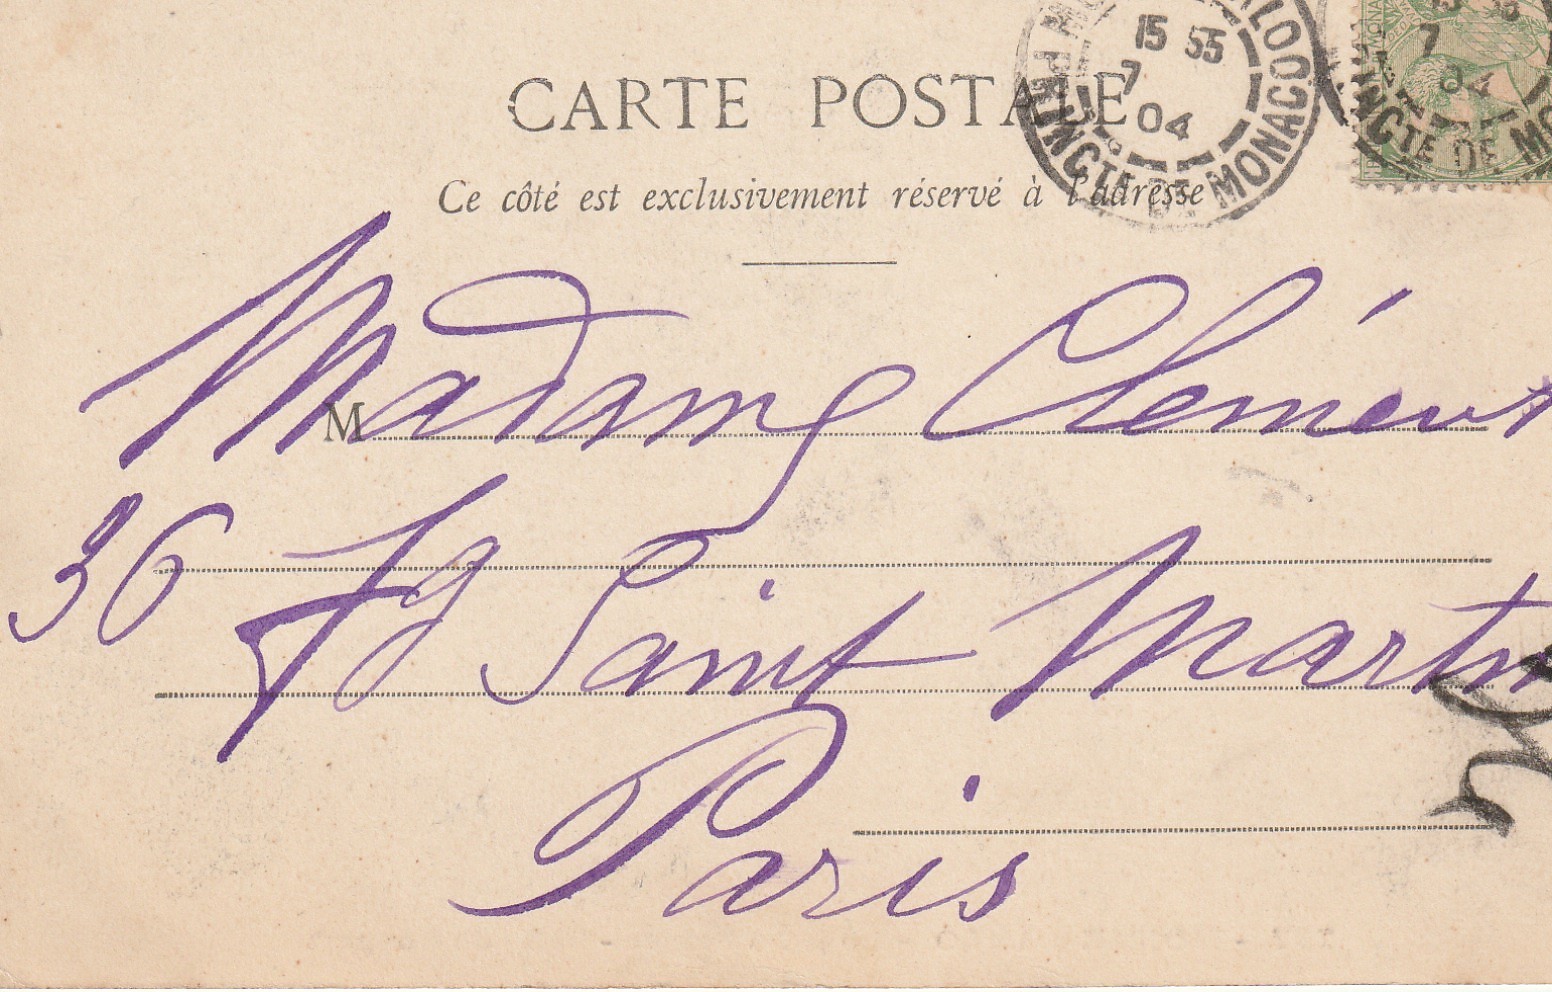 CARTE POSTALE
Ce côté est exclusivement réservé à l'adresse
15 55
7
04
PRINCTE DE MONACO
15 55
7
04
PRINCTE DE MO
M
Madame Clément
36 Fg Saint Martin
Paris